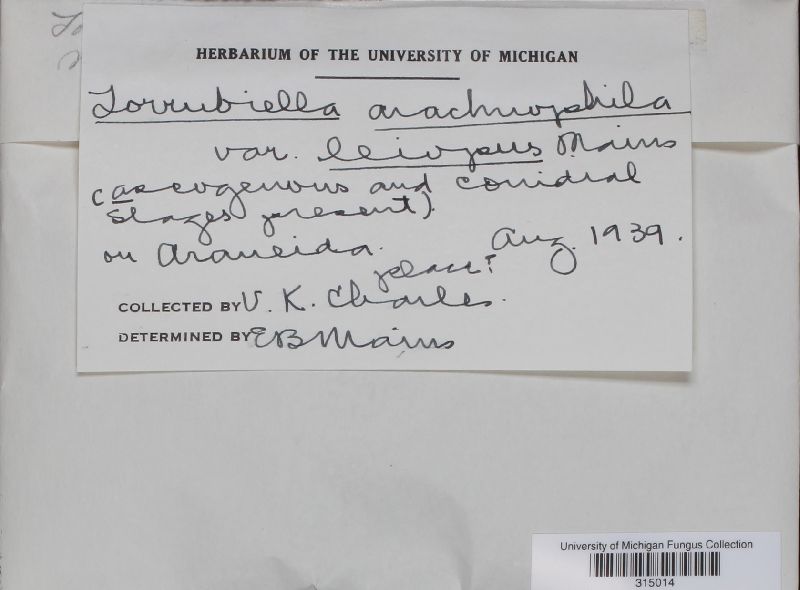 HERBARIUM OF THE UNIVERSITY OF MICHIGAN
Torrubiella arachnophila
var. leiopus Mains
(ascogenous and conidial
stages present)
on Araneida. Aug. 1939.
place?
COLLECTED BY V. K. Charles.
DETERMINED BY EB Mains
University of Michigan Fungus Collection
315014